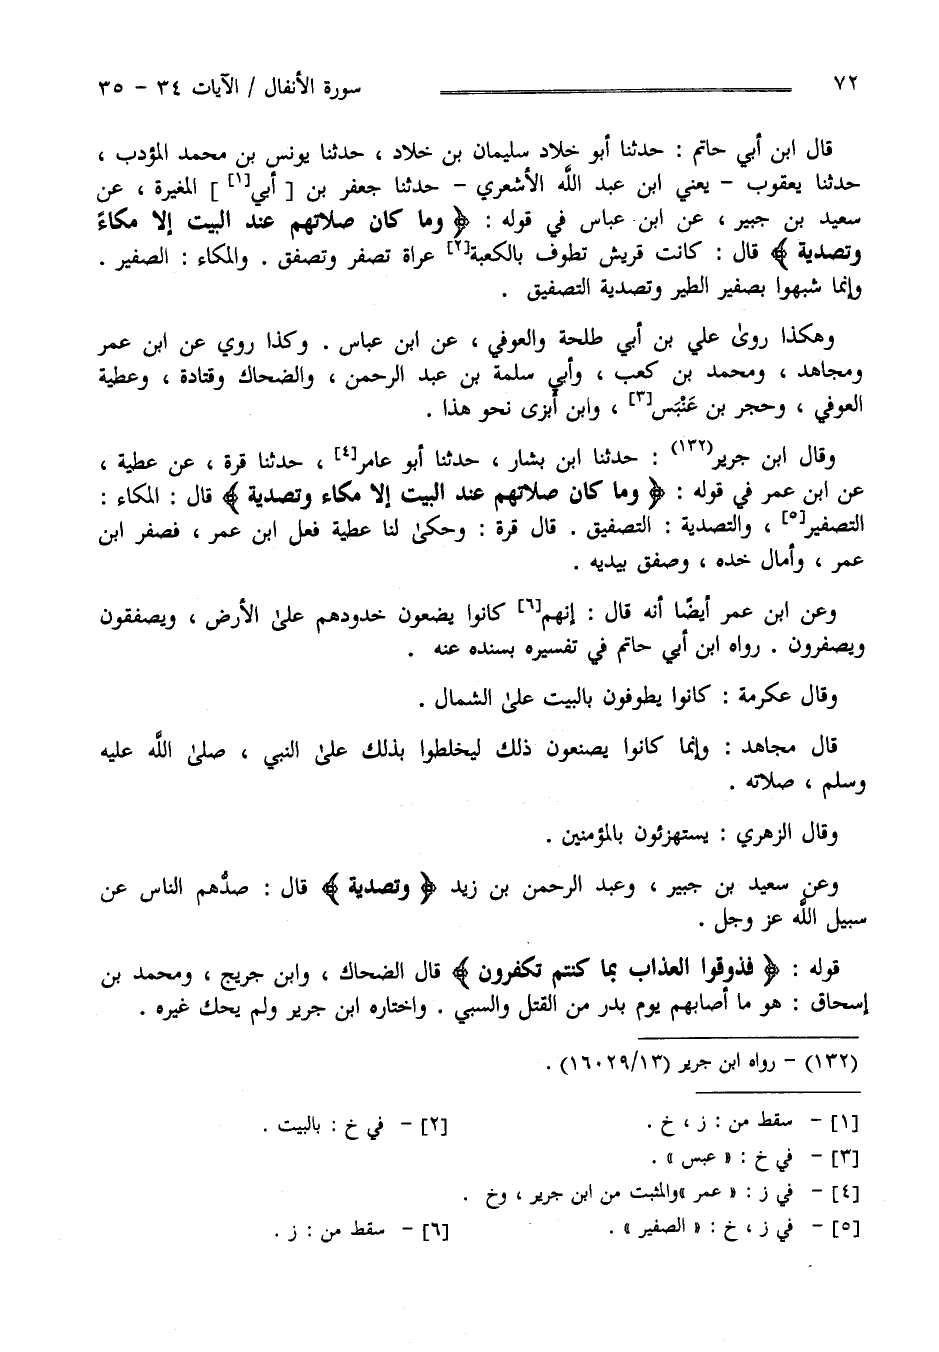 ٧٢ سورة الأنفال / الآيات ٣٤ - ٣٥
قال ابن أبي حاتم : حدثنا أبو خلاد سليمان بن خلاد ، حدثنا يونس بن محمد المؤدب ،
حدثنا يعقوب - يعني ابن عبد اللَّه الأشعري - حدثنا جعفر بن [ أبي[١] ] المغيرة ، عن
سعيد بن جبير ، عن ابن عباس في قوله : ﴿ وما كان صلاتهم عند البيت إلا مكاءً
وتصدية ﴾ قال : كانت قريش تطوف بالكعبة[٢] عراة تصفر وتصفق . والمكاء : الصفير .
وإنما شبهوا بصفير الطير وتصدية التصفيق .
وهكذا روىٰ علي بن أبي طلحة والعوفي ، عن ابن عباس . وكذا روي عن ابن عمر
ومجاهد ، ومحمد بن كعب ، وأبي سلمة بن عبد الرحمن ، والضحاك وقتادة ، وعطية
العوفي ، وحجر بن عَنْبَس[٣] ، وابن أبزى نحو هذا .
وقال ابن جرير(١٣٢) : حدثنا ابن بشار ، حدثنا أبو عامر[٤] ، حدثنا قرة ، عن عطية ،
عن ابن عمر في قوله : ﴿ وما كان صلاتهم عند البيت إلا مكاء وتصدية ﴾ قال : المكاء :
التصفير[٥] ، والتصدية : التصفيق . قال قرة : وحكىٰ لنا عطية فعل ابن عمر ، فصفر ابن
عمر ، وأمال خده ، وصفق بيديه .
وعن ابن عمر أيضًا أنه قال : إنهم[٦] كانوا يضعون خدودهم علىٰ الأرض ، ويصفقون
ويصفرون . رواه ابن أبي حاتم في تفسيره بسنده عنه .
وقال عكرمة : كانوا يطوفون بالبيت علىٰ الشمال .
قال مجاهد : وإنما كانوا يصنعون ذلك ليخلطوا بذلك علىٰ النبي ، صلىٰ اللَّه عليه
وسلم ، صلاته .
وقال الزهري : يستهزئون بالمؤمنين .
وعن سعيد بن جبير ، وعبد الرحمن بن زيد ﴿ وتصدية ﴾ قال : صدُّهم الناس عن
سبيل اللَّه عز وجل .
قوله : ﴿ فذوقوا العذاب بما كنتم تكفرون ﴾ قال الضحاك ، وابن جريج ، ومحمد بن
إسحاق : هو ما أصابهم يوم بدر من القتل والسبي . واختاره ابن جرير ولم يحك غيره .
(١٣٢) - رواه ابن جرير (١٦٠٢٩/١٣) .
[١] - سقط من : ز ، خ . [٢] - في خ : بالبيت .
[٣] - في خ : « عبس » .
[٤] - في ز : « عمر » والمثبت من ابن جرير ، وخ .
[٥] - في ز ، خ : « الصفير » . [٦] - سقط من : ز .